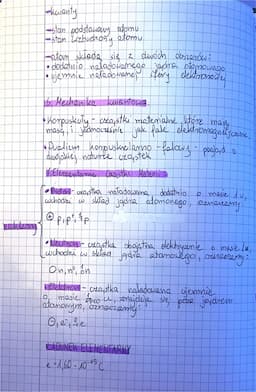 →kwanty
→stan podstawowy atomu
→stan wzbudzony atomu
→atom składa się z dwóch obszarów:
• dodatnio naładowanego jądra atomowego
• ujemnie naładowanej sfery elektronowej
Mechanika kwantowa
• Korpuskuły - cząstki materialne, które mają
masę, i jednocześnie jak fale elektromagnetyczne
• Dualizm korpuskularno-falowy - pogląd o
dwoistej naturze cząstek
Elementarne cząstki materii
• Proton - cząstka naładowana dodatnio o masie 1u,
wchodzi w skład jądra atomowego, oznaczamy:
⊕ p, p⁺, ¹₁p
nukleony
• Neutron - cząstka obojętna elektrycznie o masie 1u,
wchodzi w skład jądra atomowego, oznaczamy:
O n, n⁰, ¹₀n
• Elektron - cząstka naładowana ujemnie
o masie u, znajduje się poza jądrem
atomowym, oznaczamy:
⊖, e⁻, e
ŁADUNEK ELEMENTARNY
e = 1,60 · 10⁻¹⁹ C